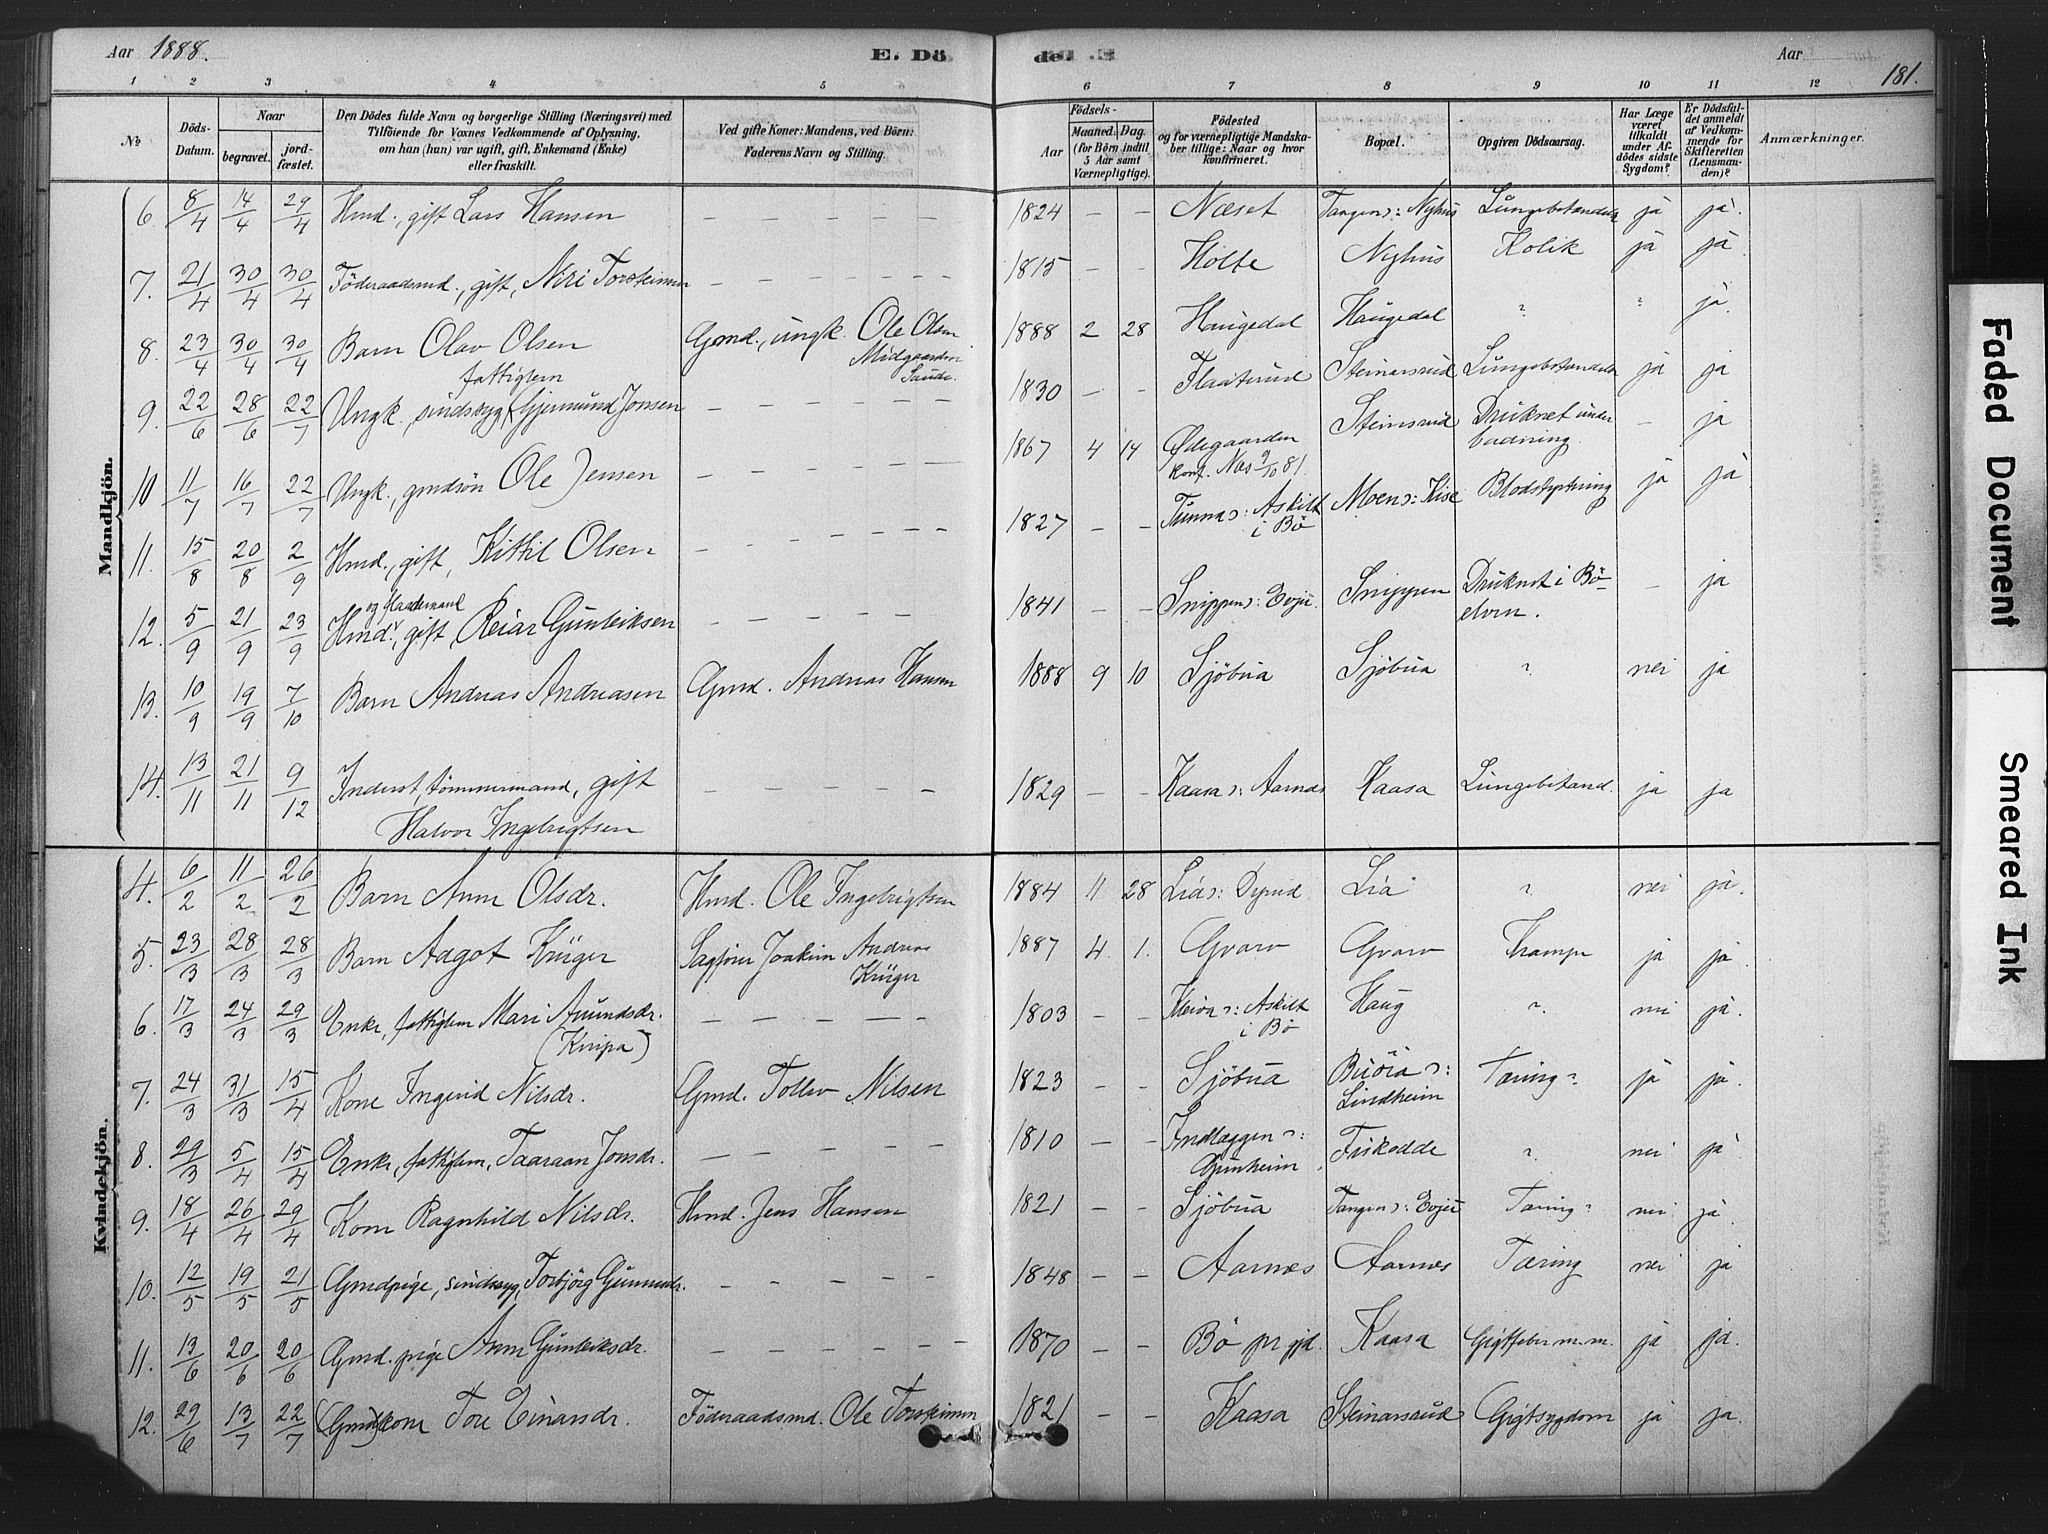 Aar 1888. E. Dö
de. E Aar 181.
1 2 3 4 5 6 7 8 9 10 11 12
No Döds-Datum. Naar begravet. jordfæstet. Den Dödes fulde Navn og borgerlige Stilling (Næringsvei) med Tilföiende for Voxnes Vedkommende af Oplysning, om han (hun) var ugift, gift, Enkemand (Enke) eller fraskilt. Ved gifte Koner: Mandens, ved Börn: Faderens Navn og Stilling. Födsels- Aar Maaned. Dag. (for Börn indtil 5 Aar samt Værnepligtige). Födested og for værnepligtige Mandskaber tillige: Naar og hvor konfirmeret. Bopæl. Opgiven Dödsaarsag. Har Læge været tilkaldt under Afdödes sidste Sygdom? Er Dödsfaldet anmeldt af Vedkommende for Skifteretten (Lensmanden)? Anmærkninger.
Mandkjön.
6 8/4 14/4 29/4 Hmd., gift Lars Hansen — — — — — 1824 — — Næset Tangen ɔ: Nyhus Lungebetændelse ja ja.
7. 21/4 30/4 30/4 Föderaadsmd., gift, Niri Torsteinsen — — — — — 1815 — — Holte Nyhus Kolik ja ja.
8. 23/4 30/4 30/4 Barn Olav Olsen Gmd., ungk. Ole Olsen Midgaarden Saude. 1888 2 28 Haugedal Haugedal ? " ja.
9. 22/6 28/6 22/7 Ungk., sindssyg fattiglem Gjermund Jonsen — — — — — 1830 — — Flaaterud Steinarsrud Lungebetændelse ja ja
10 11/7 16/7 22/7 Ungk., gmdsön Ole Jensen — — — — — 1867 4 14 Ødegaarden konf. Nes 9/10 81. Steinsrud Druknet under badning — ja
11. 15/8 20/8 2/9 Hmd., gift, Kittil Olsen — — — — — 1827 — — Tunna ɔ: Askilt i Bö Moen ɔ: Kise Blodstyrtning ja ja
12. 5/9 21/9 23/9 Hmd. og flaademand, gift, Reiar Gunleiksen — — — — — 1841 — — Snippen ɔ: Evju. Snippen Druknet i Bö-elven. — ja
13. 10/9 19/9 7/10 Barn Andreas Andreasen Gmd. Andreas Hansen 1888 9 10 Sjöbua Sjöbua ? nei ja
14. 13/11 21/11 9/12 Inderst, tömmermand, gift Halvor Ingebrigtsen — — — — — 1829 — — Kaasa ɔ: Aarnes Kaasa Lungebetænd. ja ja
Kvindekjön.
4. 6/2 11/2 26/2 Barn Anne Olsdr. Hmd. Ole Ingebrigtsen 1884 11 28 Lia ɔ: Dyrud Lia ? nei ja.
5. 23/3 28/3 28/3 Barn Aagot Krüger Sagförer Joakim Andreas Krüger 1887 4. 1. Gvarv Gvarv Krampe ja ja.
6. 17/3 24/3 29/3 Enke, fattiglem Mari Amundsdr. (Kripa) — — — — — 1803 — — ɔ: Askilt i Bö Haug ? nei ja.
7. 24/3 31/3 15/4 Kone Ingerid Nilsdr. Gmd. Tollev Nilsen 1823 — — Sjöbua ɔ: Lindheim Tæring ? ja ja.
8. 29/3 5/4 15/4 Enke, fattiglem, Taaraan Jonsdr. — — — — — 1810 — — Indlæggen ɔ: Gunheim Fiskodde ? nei ja.
9. 18/4 26/4 29/4 Kone Ragnhild Nilsdr. Hmd. Jens Hansen 1821 — — Sjöbua Tangen ɔ: Evju Tæring ? nei ja.
10. 12/5 19/5 21/5 Gmdpige, sindssyg, Torbjörg Gunnulfsdr. — — — — — 1848 — — Aarnes Aarnes Tæring nei ja
11. 13/6 20/6 20/6 Gmd. pige Anne Gunleiksdr. — — — — — 1870 — — Bö prgjd. Kaasa Gigtfeber m. m. ja ja.
12. 29/6 13/7 22/7 (Gmd)kone Tore Einarsdr. Föderaadsmd. Ole Torsteinsen 1821 — — Kaasa Steinarsrud Gigtsygdom ja ja.
Faded Document
Smeared Ink